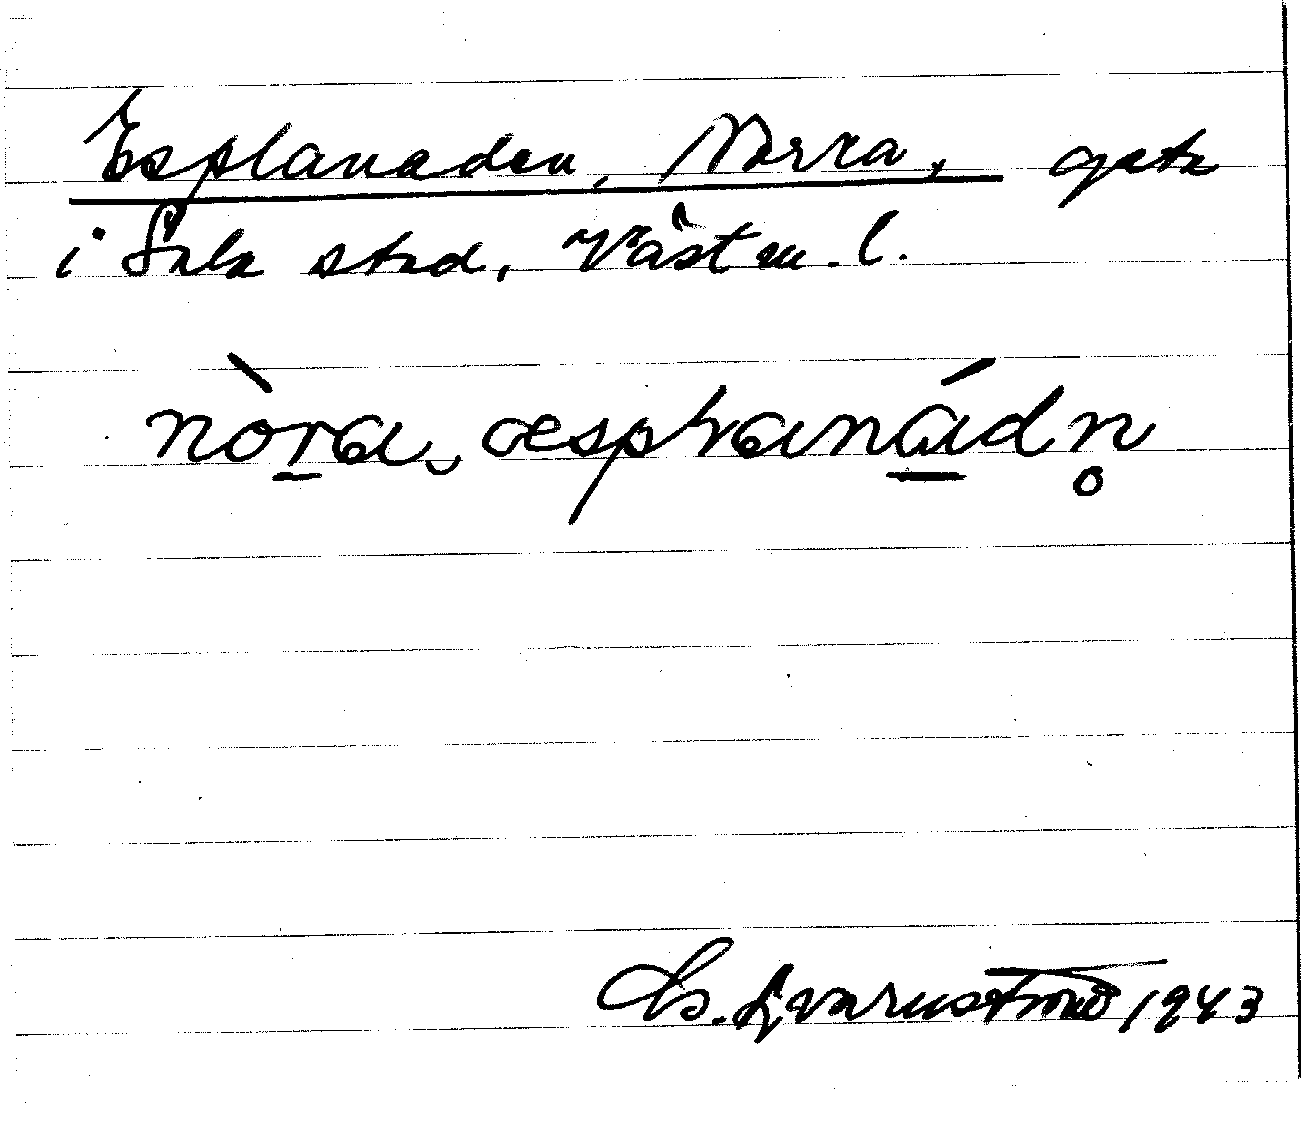 Esplanaden, Norra, gata
i Sala stad, Västm. l.
nòra‿æsplanádn̥
Qvarnström 1943